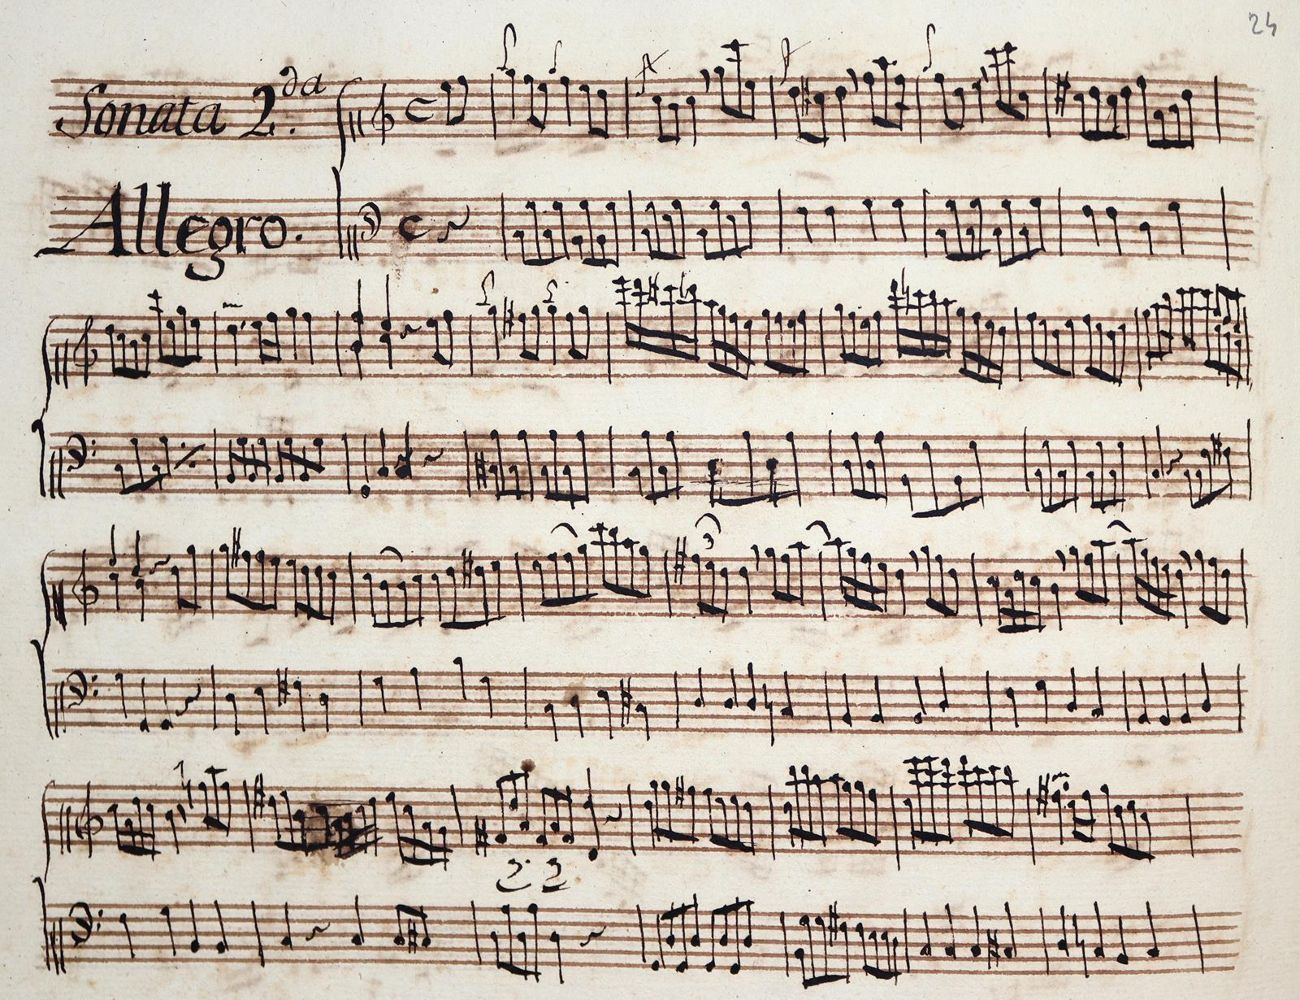 24
Sonata 2.da
Allegro.
3